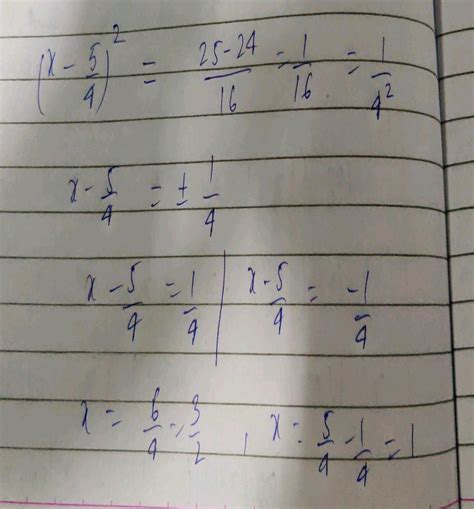 (x - 5/4)² = 25-24/16 = 1/16 = 1/4²
x - 5/4 = ± 1/4
x - 5/4 = 1/4 | x - 5/4 = -1/4
x = 6/4 = 3/2 , x = 5/4 - 1/4 = 1